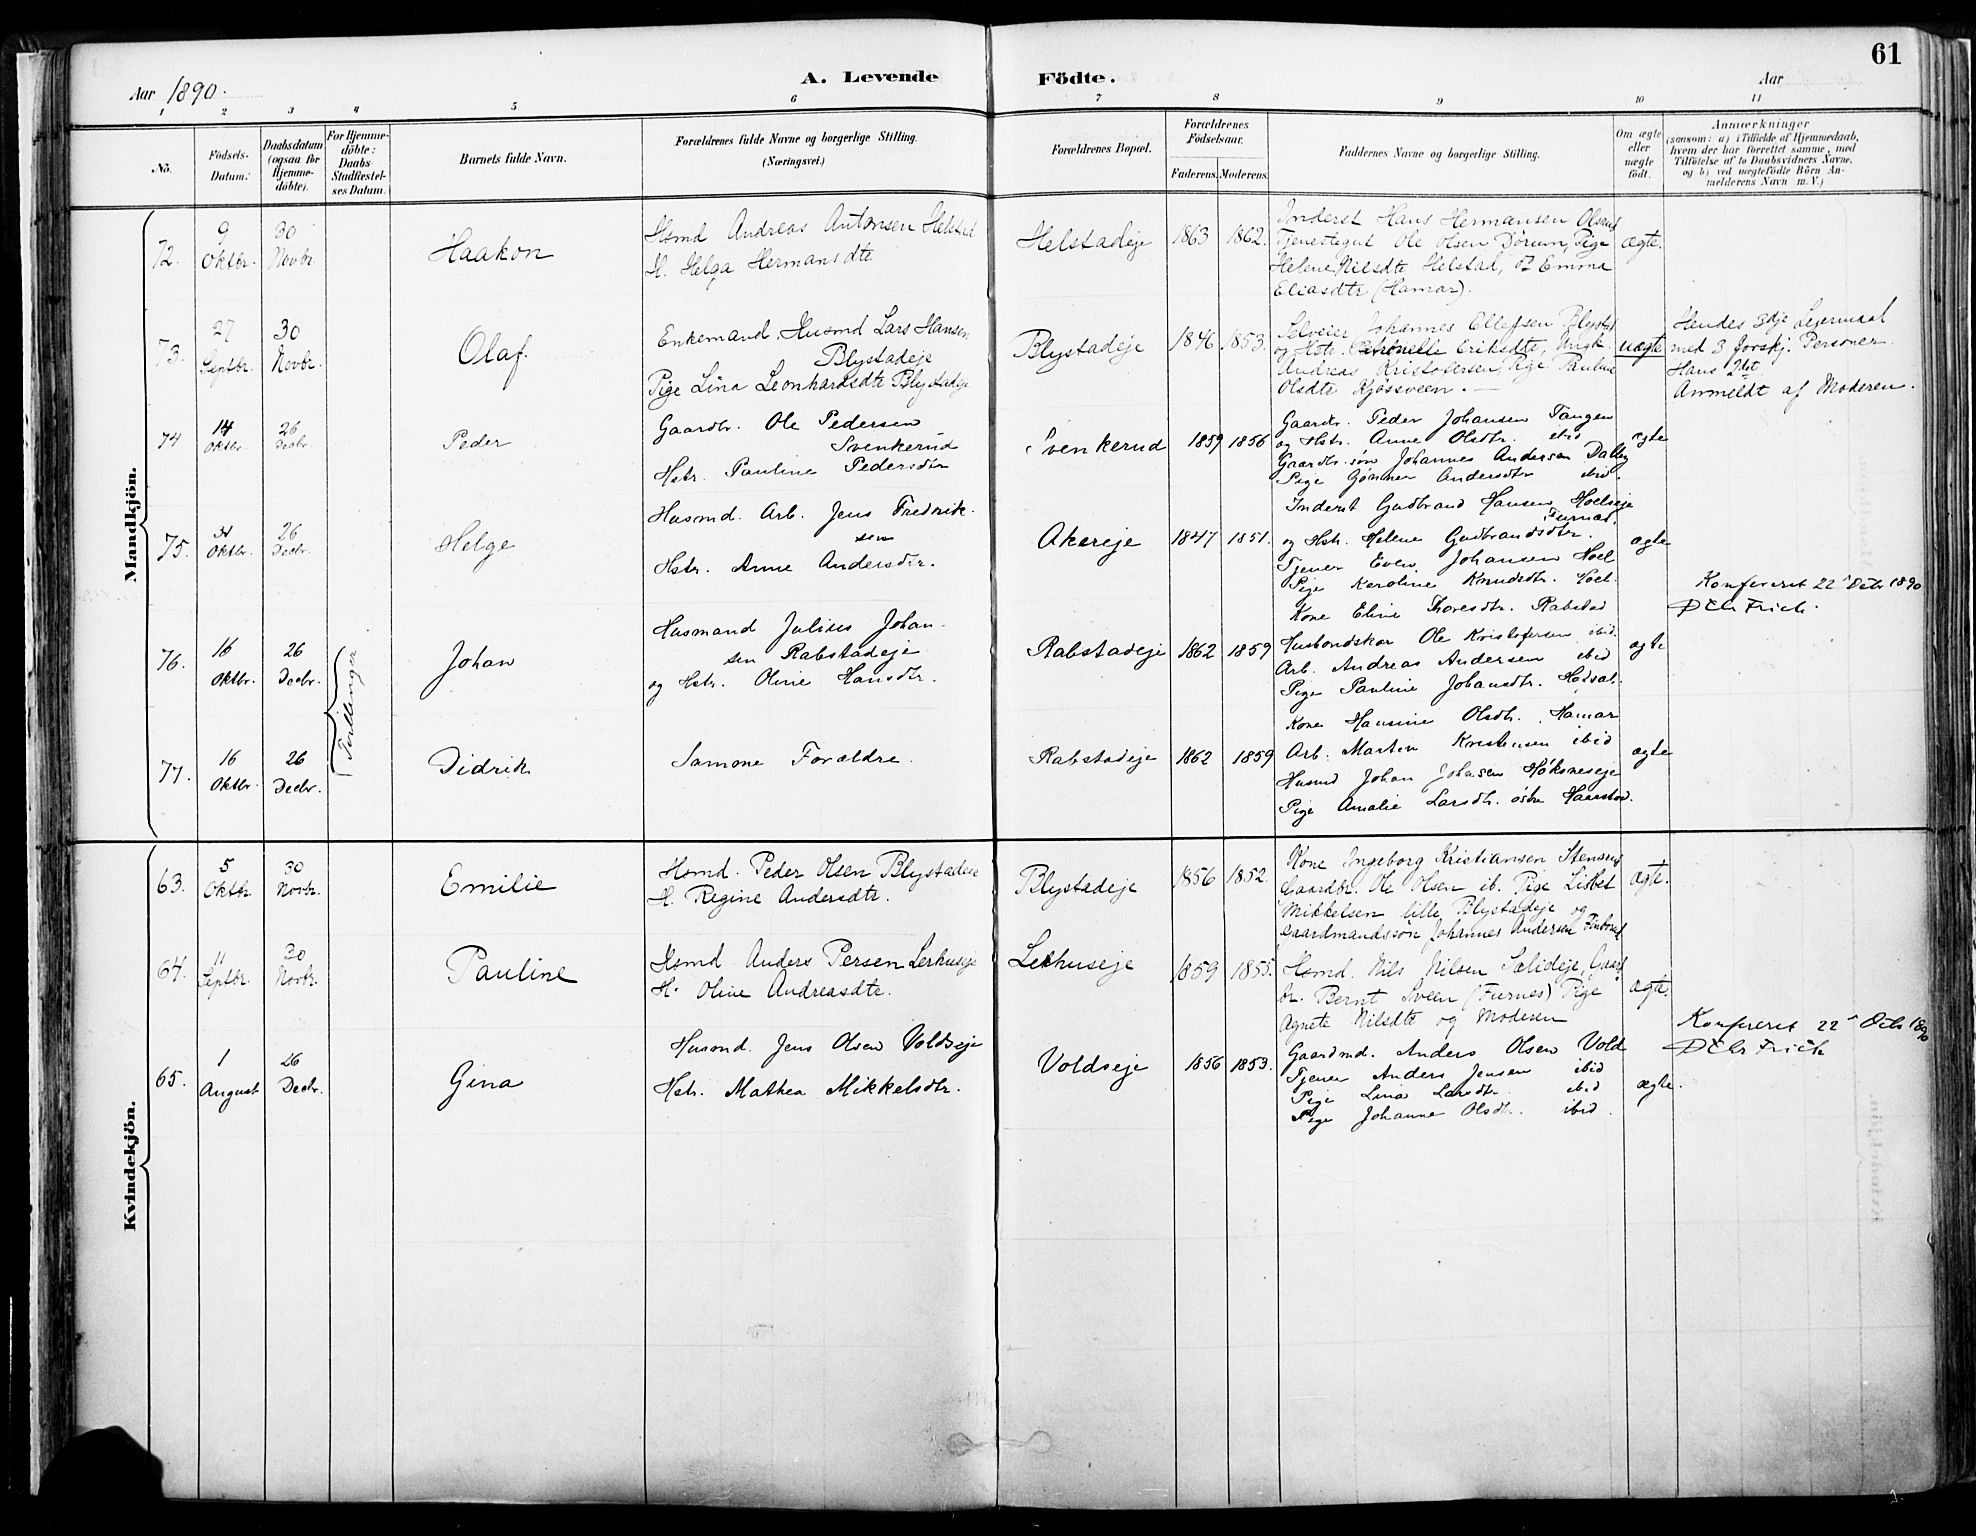 61
Aar 1890.
A. Levende Födte.
Aar
1 2 3 4 5 6 7 8 9 10 11
No.
Födsels-
Datum.
Daabsdatum
(ogsaa for
Hjemme-
döbte).
For Hjemme-
döbte:
Daabs-
Stadfæstel-
ses Datum.
Barnets fulde Navn.
Forældrenes fulde Navne og borgerlige Stilling.
(Næringsvei.)
Forældrenes Bopæl.
Forældrenes
Födselsaar.
Faderens. Moderens.
Faddernes Navne og borgerlige Stilling.
Om ægte
eller
uægte
födt.
Anmærkninger
(saasom: a) i Tilfælde af Hjemmedaab,
hvem der har forrettet samme, med
Tilföielse af to Daabsvidners Navne,
og b) ved uægtefödte Börn An-
melderens Navn m. V.)
Mandkjön.
72.
9
Oktbr.
30
Novbr.
Haakon
Hsmd Andreas Antonsen Helstad
H. Helga Hermansdte
Helstadeje
1863
1862.
Inderst Hans Hermansen
Tjenestegut Ole Olsen Dørum, Pige
Helene Nilsdte Helstad, og Emma
Eliasdtr (Hamar).
ægte.
73.
27
Septbr.
30
Novbr.
Olaf.
Enkemand, Husmd Lars Hansen
Blystadeje
Pige Lina Leonhardsdte Blystadeje
Blystadeje
1846
1853.
Selveier Johannes Ellefsen Blystad
og Hstr. Eriksdte, Ungk
Andreas Kristofersen, Pige Pauline
Olsdte Kjøssveen. —
uægte
Hendes 3dje Lejermaal
med 3 forskj. Personer.
Hans 2det
Anmeldt af Moderen.
74
14
Oktbr.
26
Decbr.
Peder
Gaardbr. Ole Pedersen
Svenkerud
Hstr. Pauline Pedersdtr
Svenkerud
1859
1856
Gaardbr. Peder Johansen Tangen
og Hstr. Anne Olsdtr. ibid
Gaardbr. søn Johannes Andersen Dalby
Pige Gjønner Andersdtr ibid.
ægte
75.
31
Oktbr.
26
Decbr.
Helge
Husmd. Arb. Jens Fredrik-
sen
Hstr. Anne Andersdtr.
Akereje
1847
1851.
Inderst Gudbrand Hansen, Hoelseje
Furnæs.
og Hstr. Helene Gudbrandsdtr.
Tjener Even Johansen Hoel
Pige Karoline Knudsdtr. Hoel.
ægte
Konfereret 22 Decbr 1890
D Chr Frich.
76.
16
Oktbr.
26
Decbr.
Tvillinger
Johan
Husmand Julius Johan-
sen Rabstadeje
og Hstr. Oline Hansdtr.
Rabstadeje
1862
1859
Kone Eline Thoresdtr. Rabstad
Husbondskar Ole Kristofersen ibid.
Arb. Andreas Andersen ibid
Pige Pauline Johansdtr.
ægte
77.
16
Oktbr.
26
Decbr.
Didrik
Samme Forældre.
Rabstadeje
1862
1859
Kone Hansine Olsdtr. Hamar
Arb. Martin Kristensen ibid
Husmd Johan Johnsen Høksneseje
Pige Amalie Larsdtr. østre Haarstad.
ægte
Kvindekjön.
63.
5
Oktbr.
30
Novbr.
Emilie
Hsmd. Peder Olsen Blystadeie
H. Regine Andersdtr.
Blystadeje
1856
1852.
Kone Ingeborg Kristiansen
Gaardbr. Ole Olsen ib. Pige Lisbet
Mikkelsen lille Blystadeje og
Gaardmandssøn Johannes Andersen
ægte.
64.
11
Septbr.
30
Novbr.
Pauline
Hsmd Anders Persen Lerhuseje
H. Oline Andreasdtr.
Lerhuseje
1859
1855.
Hsmd. Nils Nilsen Sælideje, Gaard
br. Bernt Sveen (Furnes) Pige
Agnete Nilsdte og Moderen
ægte.
65.
1
August
26
Decbr.
Gina
Husmd. Jens Olsen Voldseje
Hstr. Mathea Mikkelsdtr.
Voldseje
1856
1853.
Gaardmd. Anders Olsen Vold
Tjener Anders Jensen ibid
Pige Lina Larsdtr. ibid
Pige Johanne Olsdtr. ibid.
ægte.
Konfereret 22 Decbr 1890
D Chr Frich